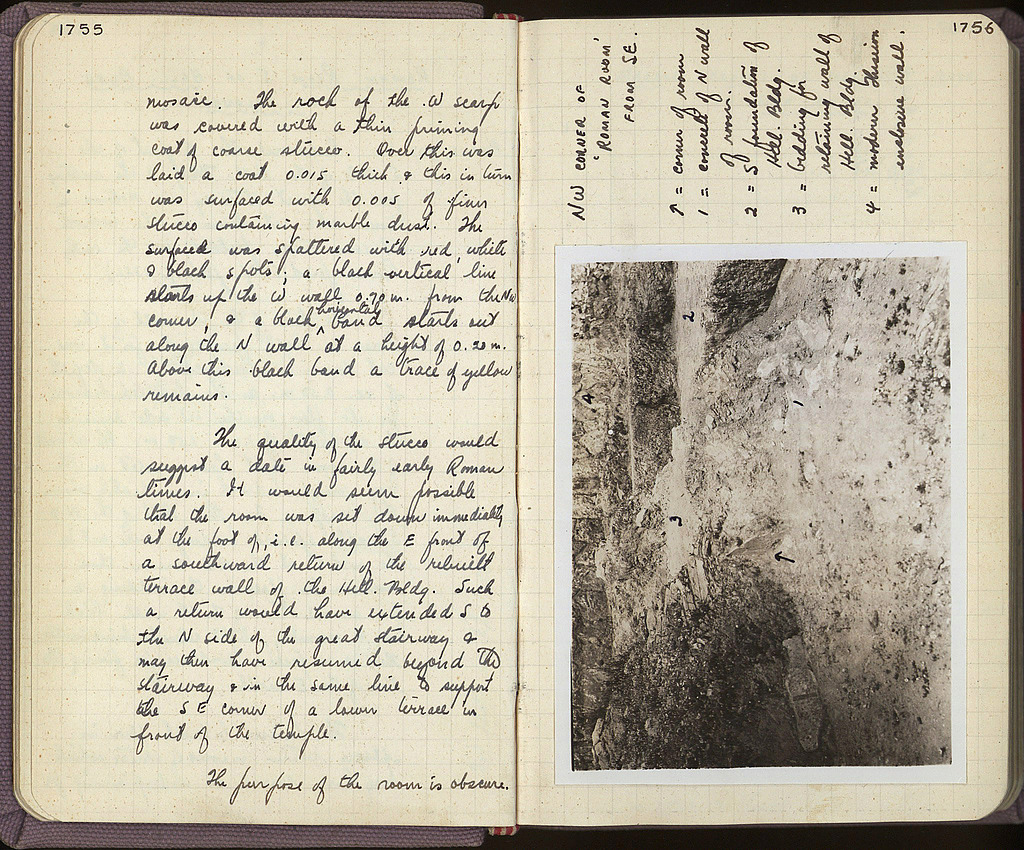 1755
mosaic. The rock of the W scarp
was covered with a thin priming
coat of coarse stucco. Over this was
laid a coat 0.015 thick & this in turn
was surfaced with 0.005 of finer
stucco containing marble dust. The
surface was spattered with red, white
& black spots; a black vertical line
starts up the W wall 0.70 m. from the NW
corner, & a black horizontal band starts out
along the N wall at a height of 0.20 m.
Above this black band a trace of yellow
remains.
The quality of the stucco would
suggest a date in fairly early Roman
times. It would seem possible
that the room was set down immediately
at the foot of, i.e. along the E front of
a southward return of the rebuilt
terrace wall of the Hell. Bldg. Such
a return would have extended S to
the N side of the great stairway &
may then have resumed beyond the
stairway & in the same line to support
the SE corner of a lower terrace in
front of the temple.
The purpose of the room is obscure.
1756
NW CORNER OF
'ROMAN ROOM'
FROM SE.
↑ = corner of room
1 = concrete of N wall
of room.
2 = S foundation of
Hell. Bldg.
3 = bedding for
retaining wall of
Hell. Bldg.
4 = modern
enclosure wall.
2
4
1
3
↑